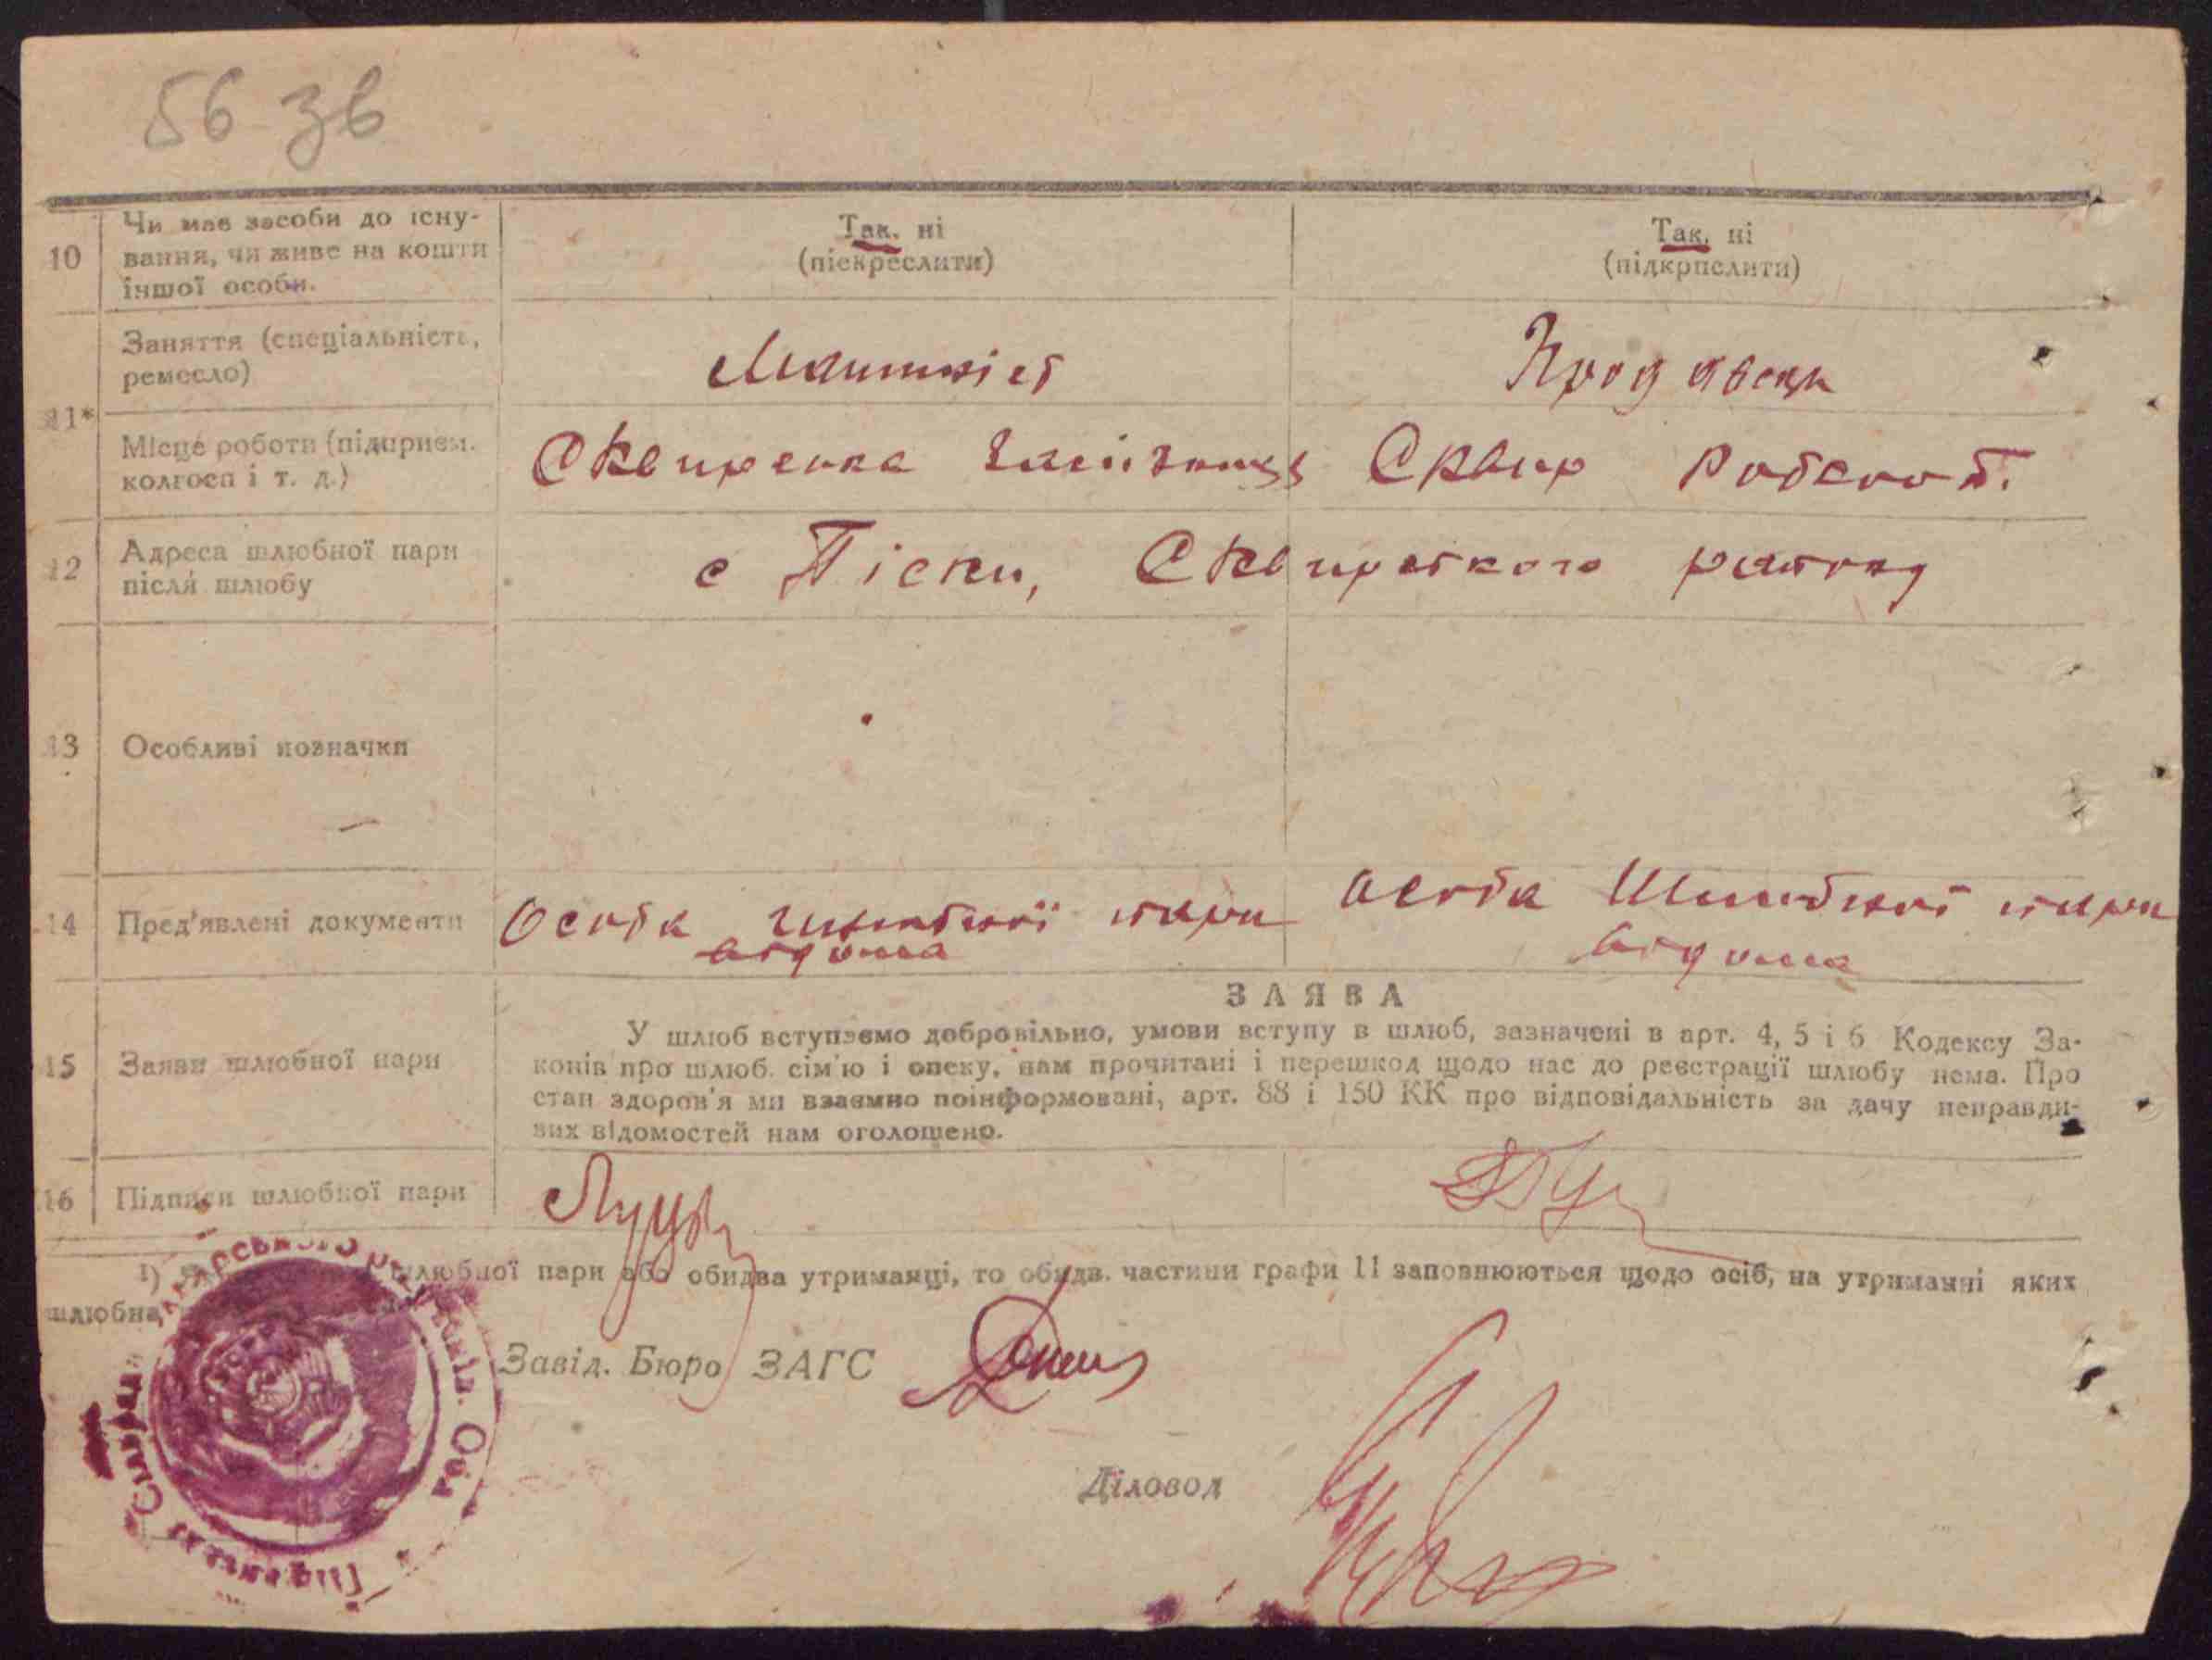 56 зв
10
Чи має засоби до існу-
вання, чи живе на кошти
іншої особи.
Так, ні
(піскреслити)
Так, ні
(підкрпслити)
11*
Заняття (спеціальність,
ремесло)
Машиніст
Продавець
Місце роботи (підприєм.
колгосп і т. д.)
Сквирська
Сквир
12
Адреса шлюбної пари
після шлюбу
с Піски, Сквирського району
13
Особливі позначки
14
Пред'явлені документи
Особа шлюбної пари
відома
Особа Шлюбної пари
відома
15
Заяви шлюбної пари
ЗАЯВА
У шлюб вступаємо добровільно, умови вступу в шлюб, зазначені в арт. 4, 5 і 6 Кодексу За-
конів про шлюб. сім'ю і опеку, нам прочитані і перешкод щодо нас до реєстрації шлюбу нема. Про
стан здоров'я ми взаємно поінформовані, арт. 88 і 150 КК про відповідальність за дачу неправди-
вих відомостей нам оголошено.
16
Підписи шлюбної пари
1) шлюбної пари або обидва утриманці, то обидв. частини графи 11 заповнюються щодо осіб, на утриманні яких
шлюбна
Завід. Бюро ЗАГС
Діловод